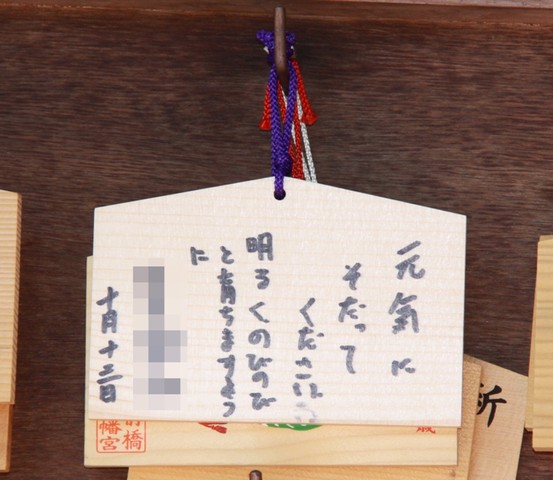 元気に
そだって
ください
明るくのびのび
と育ちますよう
に
十月十三日
前橋
幡宮
歳
祈